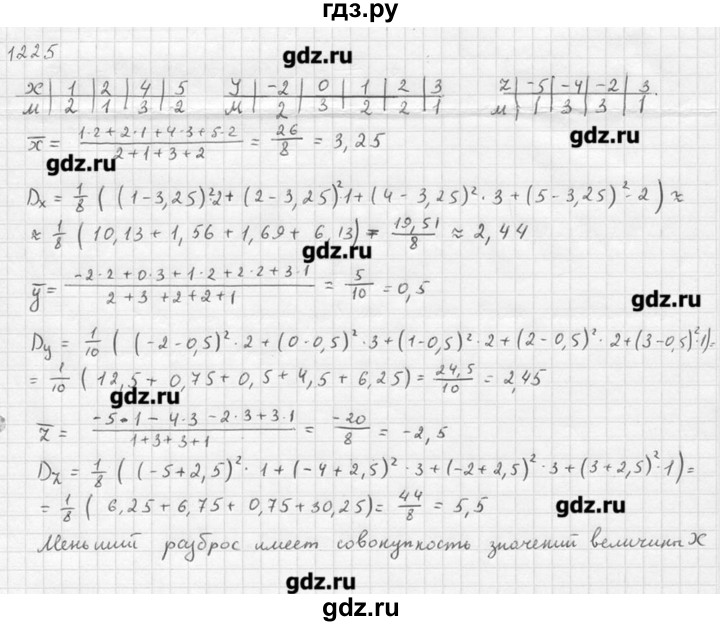 гдз.ру
1225
gdz.ru
x | 1 | 2 | 4 | 5    y | -2 | 0 | 1 | 2 | 3    z | -5 | -4 | -2 | 3
м | 2 | 1 | 3 | 2    м | 2 | 3 | 2 | 2 | 1    м | 1 | 3 | 3 | 1
gdz.ru
x̄ = (1·2+2·1+4·3+5·2)/(2+1+3+2) = 26/8 = 3,25
gdz.ru
Dx = 1/8 ((1-3,25)²·2+(2-3,25)²·1+(4-3,25)²·3+(5-3,25)²·2) ≈
≈ 1/8 (10,13+1,56+1,69+6,13) = 19,51/8 ≈ 2,44
gdz.ru
ȳ = (-2·2+0·3+1·2+2·2+3·1)/(2+3+2+2+1) = 5/10 = 0,5
gdz.ru
Dy = 1/10 ((-2-0,5)²·2+(0-0,5)²·3+(1-0,5)²·2+(2-0,5)²·2+(3-0,5)²·1)=
= 1/10 (12,5+0,75+0,5+4,5+6,25) = 24,5/10 = 2,45
gdz.ru
z̄ = (-5·1-4·3-2·3+3·1)/(1+3+3+1) = -20/8 = -2,5
Dz = 1/8 ((-5+2,5)²·1+(-4+2,5)²·3+(-2+2,5)²·3+(3+2,5)²·1)=
= 1/8 (6,25+6,75+0,75+30,25)= 44/8 = 5,5
gdz.ru
Меньший разброс имеет совокупность значений величины X
gdz.ru
gdz.ru